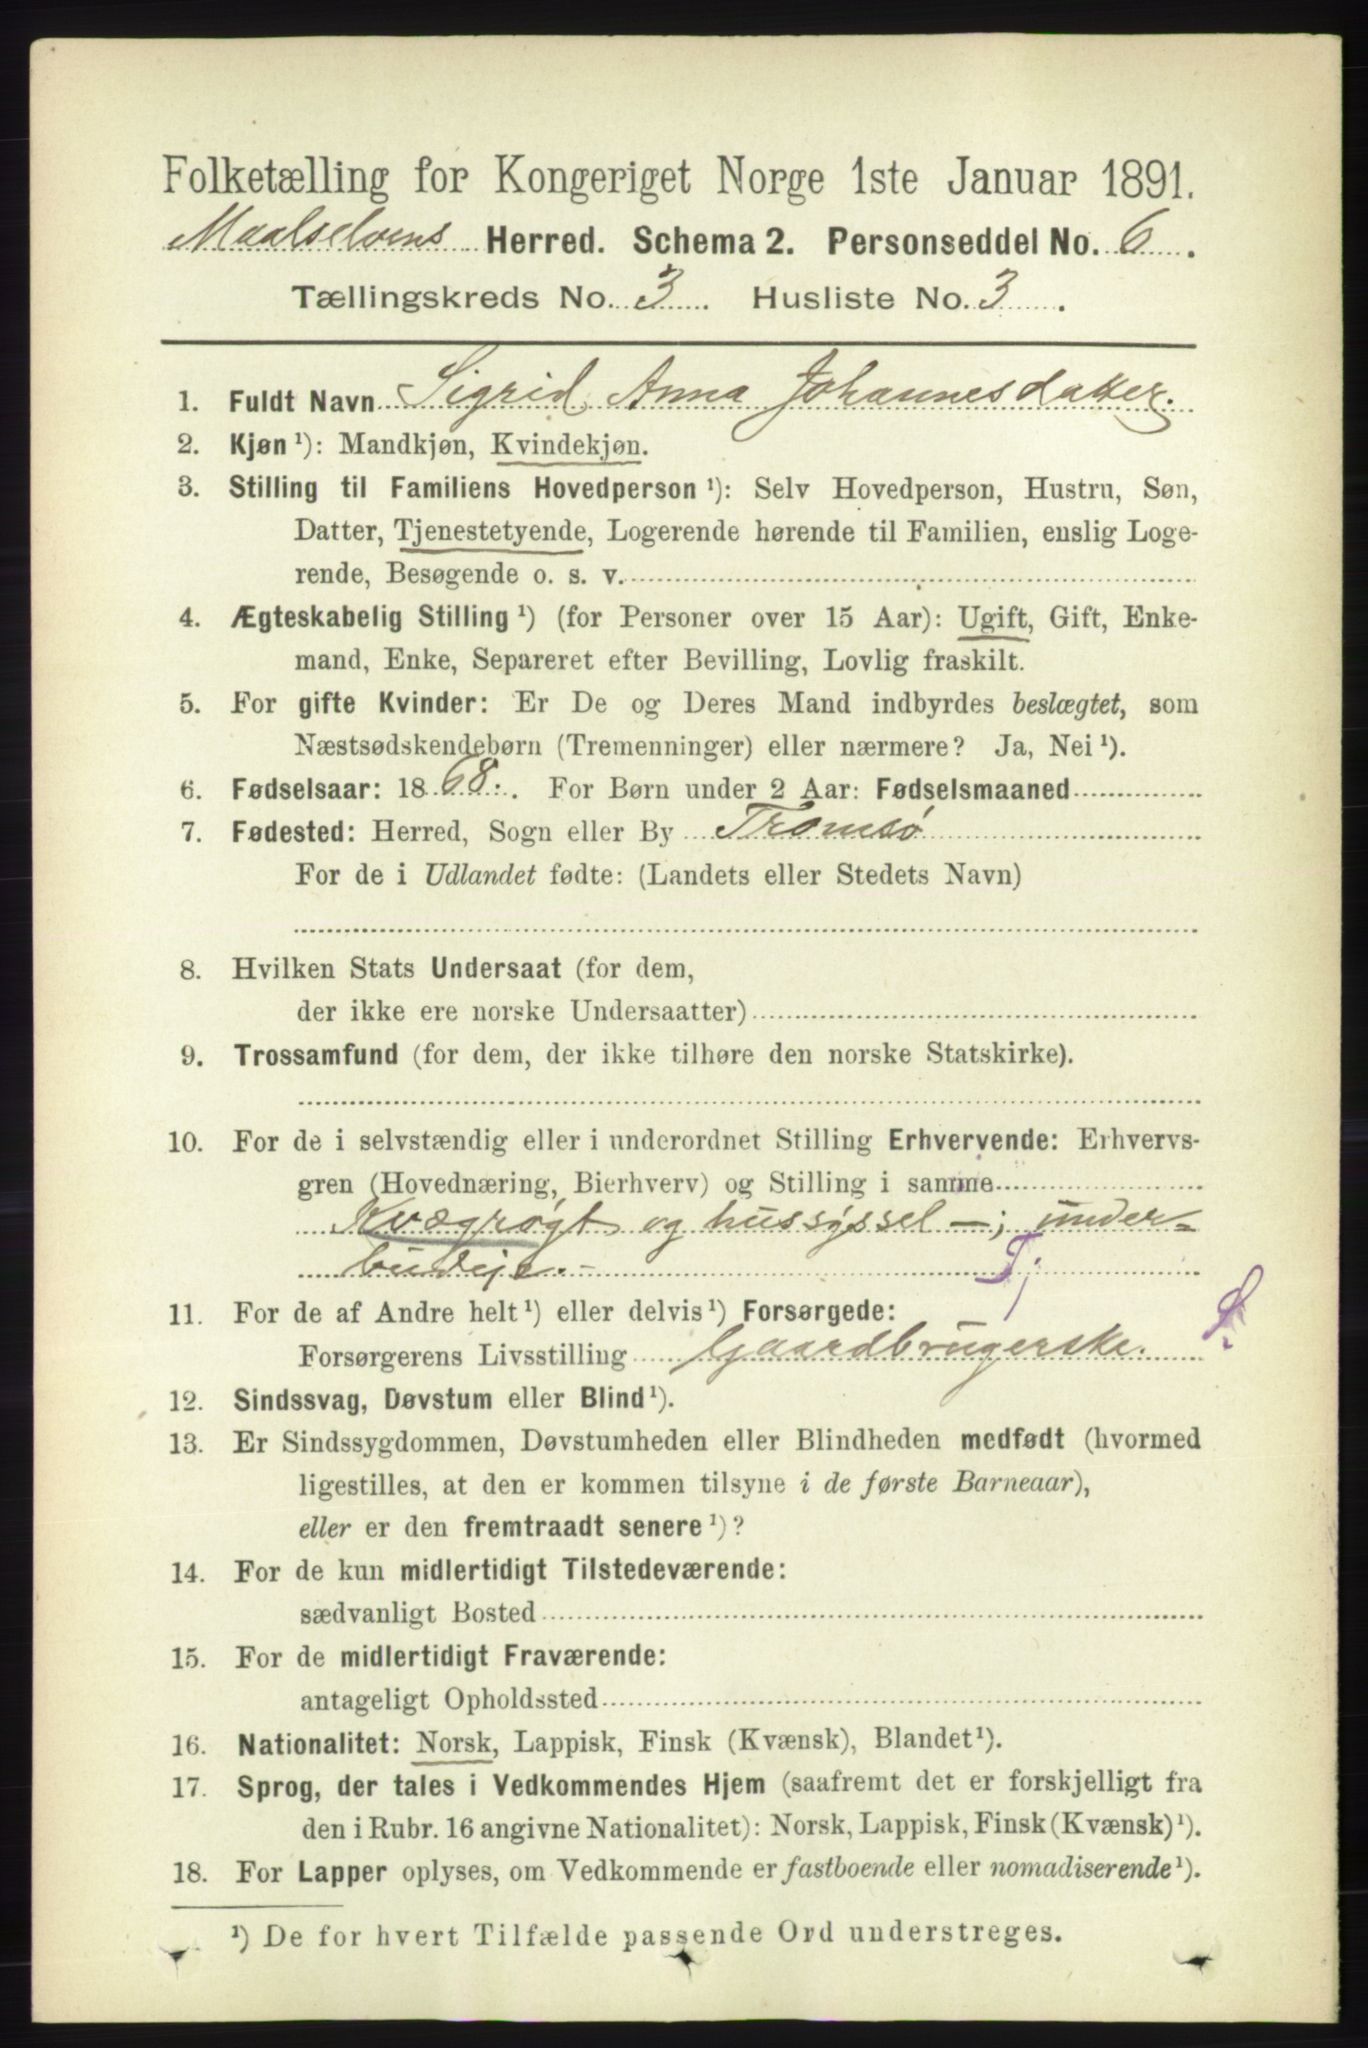 Folketælling for Kongeriget Norge 1ste Januar 1891.
Maalselvens Herred. Schema 2. Personseddel No. 6.
Tællingskreds No. 3. Husliste No. 3.
1. Fuldt Navn Sigrid Anna Johannesdatter.
2. Kjøn¹): Mandkjøn, Kvindekjøn.
3. Stilling til Familiens Hovedperson¹): Selv Hovedperson, Hustru, Søn,
Datter, Tjenestetyende, Logerende hørende til Familien, enslig Loge-
rende, Besøgende o. s. v.
4. Ægteskabelig Stilling¹) (for Personer over 15 Aar): Ugift, Gift, Enke-
mand, Enke, Separeret efter Bevilling, Lovlig fraskilt.
5. For gifte Kvinder: Er De og Deres Mand indbyrdes beslægtet, som
Næstsødskendebørn (Tremenninger) eller nærmere? Ja, Nei¹).
6. Fødselsaar: 1868. For Børn under 2 Aar: Fødselsmaaned
7. Fødested: Herred, Sogn eller By Tromsø
For de i Udlandet fødte: (Landets eller Stedets Navn)
8. Hvilken Stats Undersaat (for dem,
der ikke ere norske Undersaatter)
9. Trossamfund (for dem, der ikke tilhøre den norske Statskirke).
10. For de i selvstændig eller i underordnet Stilling Erhvervende: Erhvervs-
gren (Hovednæring, Bierhverv) og Stilling i samme
Kvægrøgt og hussyssel —; under-
budeje. – Tj
11. For de af Andre helt¹) eller delvis¹) Forsørgede:
Forsørgerens Livsstilling Gaardbrugerske.
12. Sindssvag, Døvstum eller Blind¹).
13. Er Sindssygdommen, Døvstumheden eller Blindheden medfødt (hvormed
ligestilles, at den er kommen tilsyne i de første Barneaar),
eller er den fremtraadt senere¹)?
14. For de kun midlertidigt Tilstedeværende:
sædvanligt Bosted
15. For de midlertidigt Fraværende:
antageligt Opholdssted
16. Nationalitet: Norsk, Lappisk, Finsk (Kvænsk), Blandet¹).
17. Sprog, der tales i Vedkommendes Hjem (saafremt det er forskjelligt fra
den i Rubr. 16 angivne Nationalitet): Norsk, Lappisk, Finsk (Kvænsk)¹).
18. For Lapper oplyses, om Vedkommende er fastboende eller nomadiserende¹).
¹) De for hvert Tilfælde passende Ord understreges.